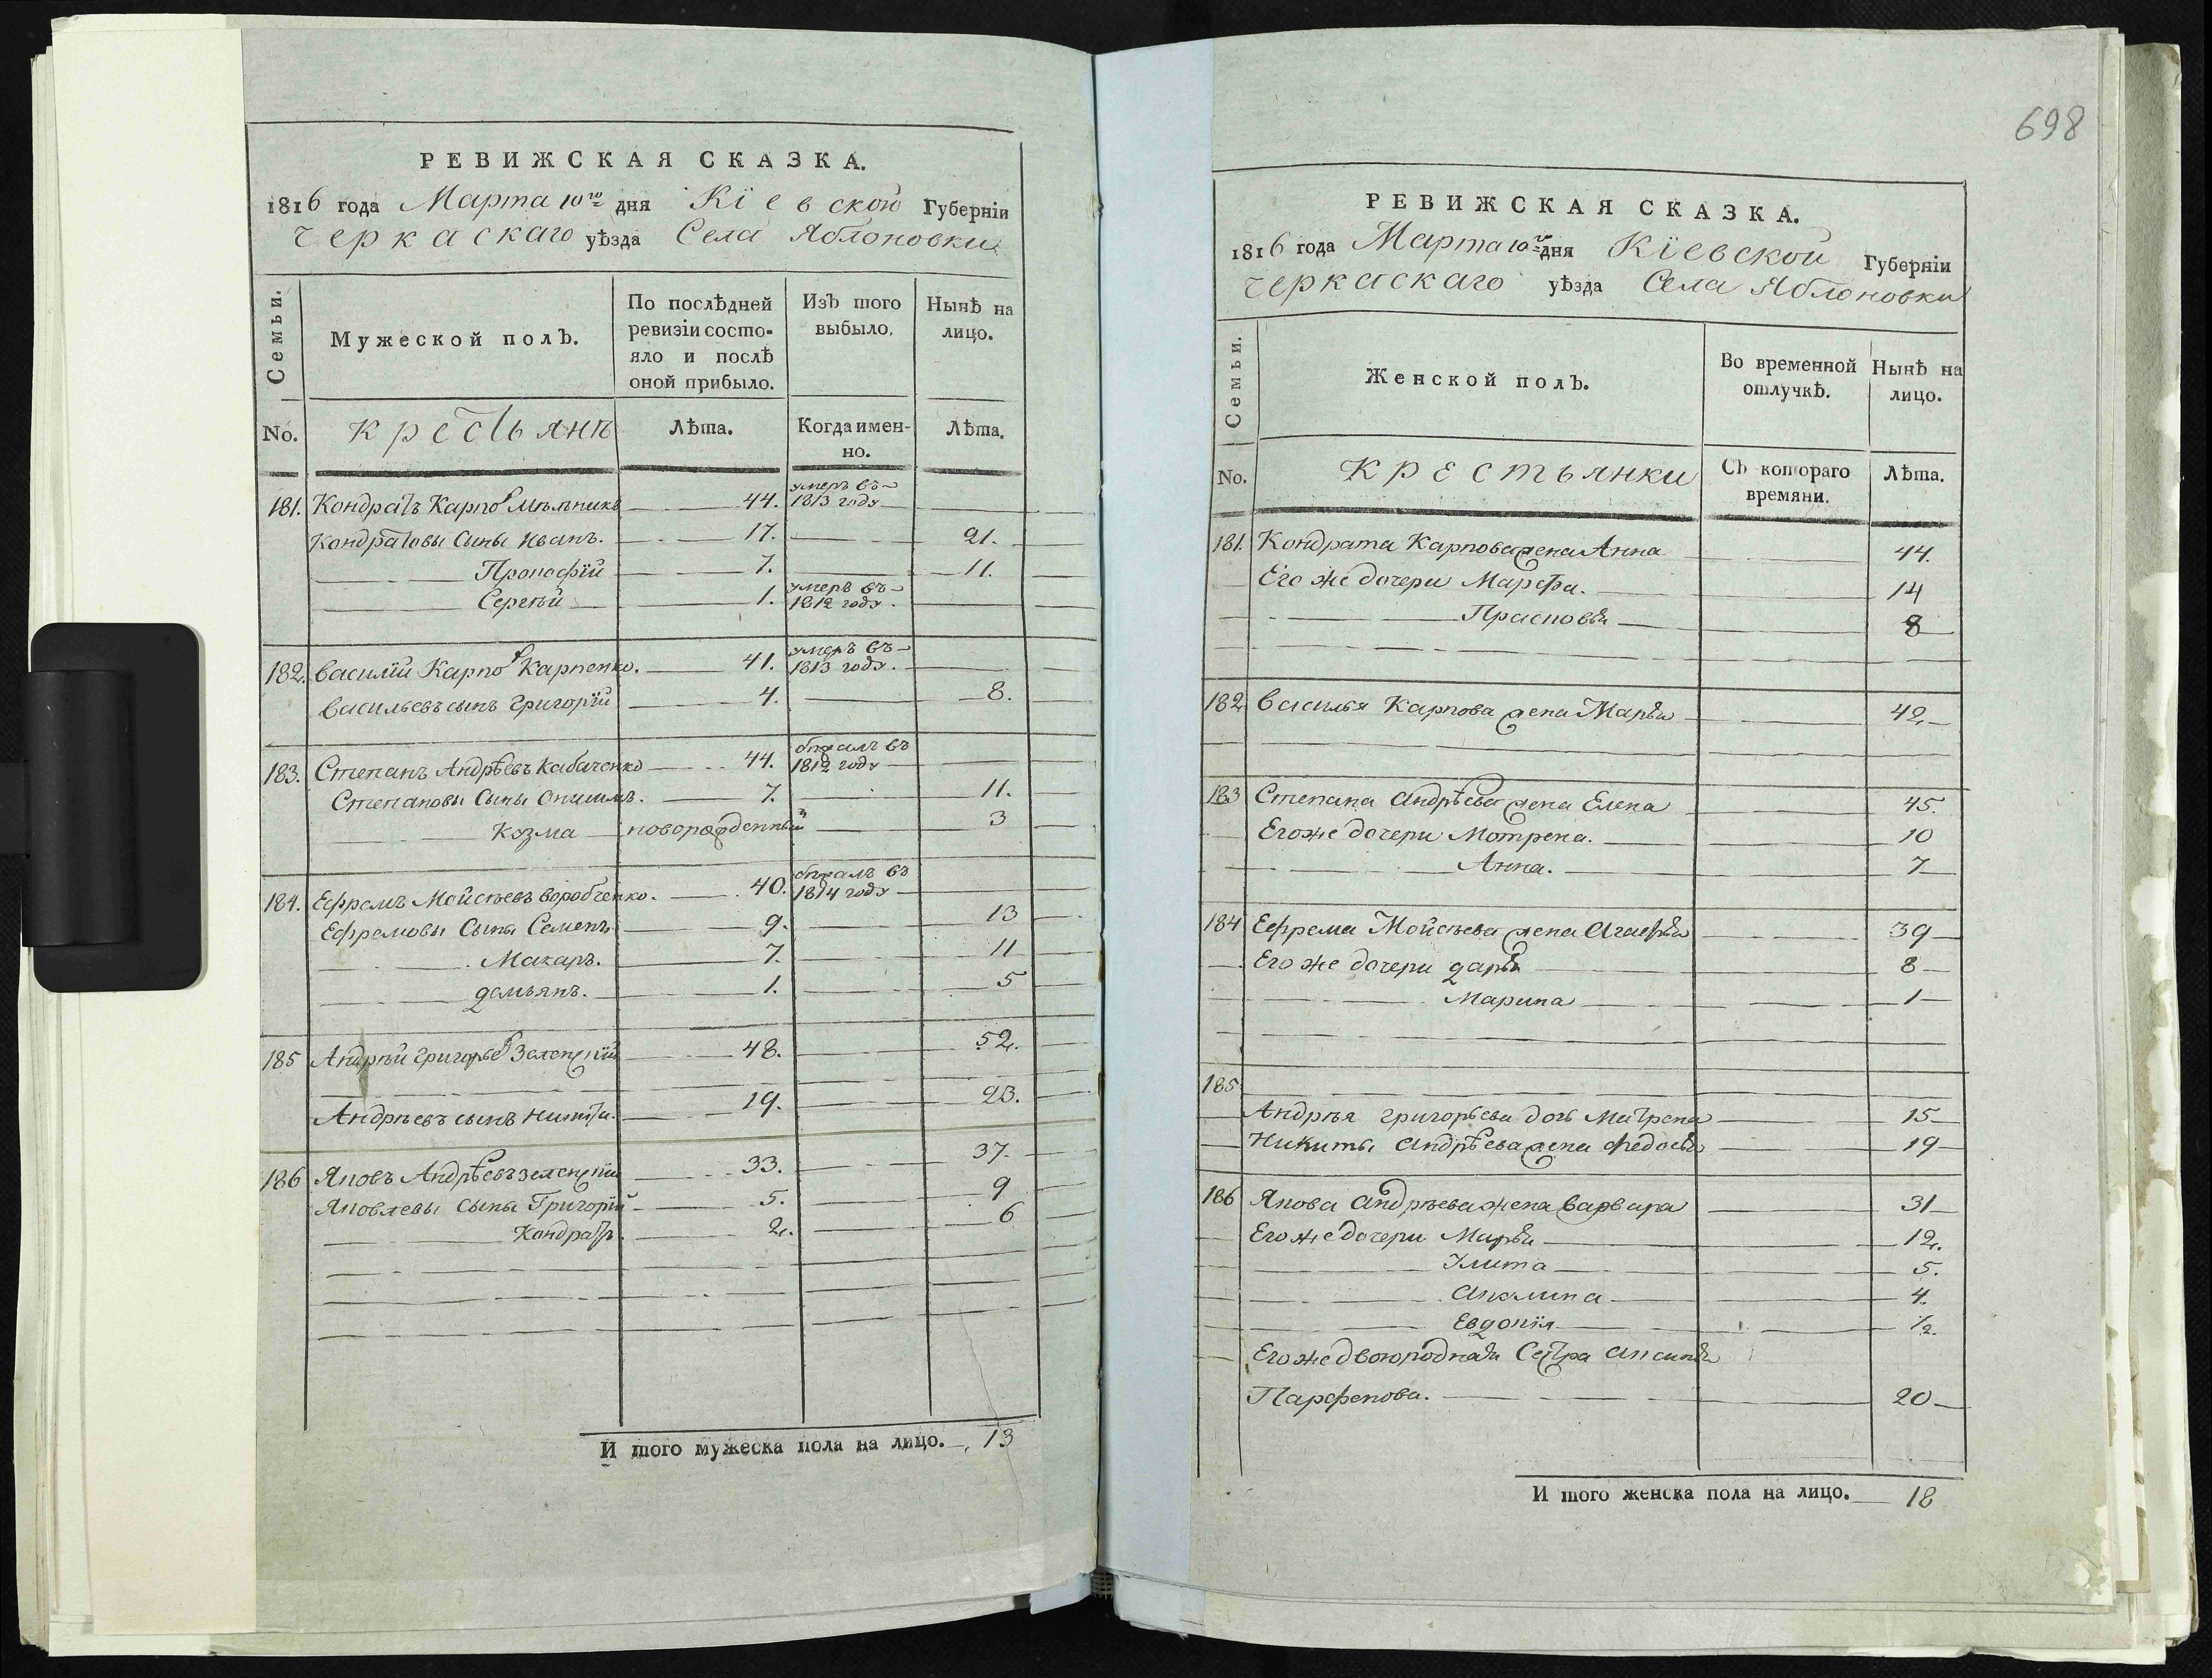 РЕВИЖСКАЯ СКАЗКА.
1816 года Марта 10го дня Кіевской Губерніи
Черкаскаго уѣзда Села Яблоновки
Семьи.
Мужеской полъ.
По послѣдней ревизіи состо-
яло и послѣ оной прибыло.
Изъ того выбыло.
Нынѣ на лицо.
No. Крестьянъ Лѣта. Когда имен-
но. Лѣта.
181. Кондратъ Карповъ Мѣльникъ 44. умеръ въ 1813 году
Кондратовы Сыны Иванъ. 17. 21.
Прокофій 7. 11.
Сергѣй 1. умеръ въ 1812 году.
182. Василій Карповъ Карпенко. 41. умеръ въ 1813 году.
Васильевъ сынъ Григорій 4. 8.
183. Степанъ Андрѣевъ Кабаченко 44. 1812 году
Степановы Сыны Онисимъ. 7. 11.
Козма новорожденный 3
184. Ефремъ Мойсѣевъ Воробченко. 40. 1814 году
Ефремовы Сыны Семенъ 9. 13
Макаръ. 7. 11
Демьянъ. 1. 5
185 Андрѣй Григорьевъ Зеленскій 48. 52.
Андрѣевъ сынъ Никита. 19. 23.
186 Яковъ Андрѣевъ Зеленскій 33. 37.
Яковлевы Сыны Григорій 5. 9
Кондратъ. 2. 6
И того мужеска пола на лицо. 13
698
РЕВИЖСКАЯ СКАЗКА.
1816 года Марта 10го дня Кіевской Губерніи
Черкаскаго уѣзда Села Яблоновки
Семьи.
Женской полъ.
Во временной отлучкѣ.
Нынѣ на лицо.
No. Крестьянки Съ котораго
времяни. Лѣта.
181. Кондрата Карпова жена Анна 44.
Его же дочери Марфа. 14
Прасковья 8
182 Василья Карпова жена Марья 42.
183 Степана Андрѣева жена Елена 45.
Его же дочери Мотрена. 10
Анна. 7
184 Ефрема Мойсѣева жена Агафья 39
Его же дочери Дарья 8
Марина 1
185
Андрѣя Григорьева дочь Матрена 15
Никиты Андрѣева жена Федосья 19
186 Якова Андрѣева жена Варвара 31
Его же дочери Марья 12.
Улита 5.
Акилина 4.
Евдокія 1/2.
Его же двоюродная Сестра Аксинья
Парфенова. 20
И того женска пола на лицо. 18